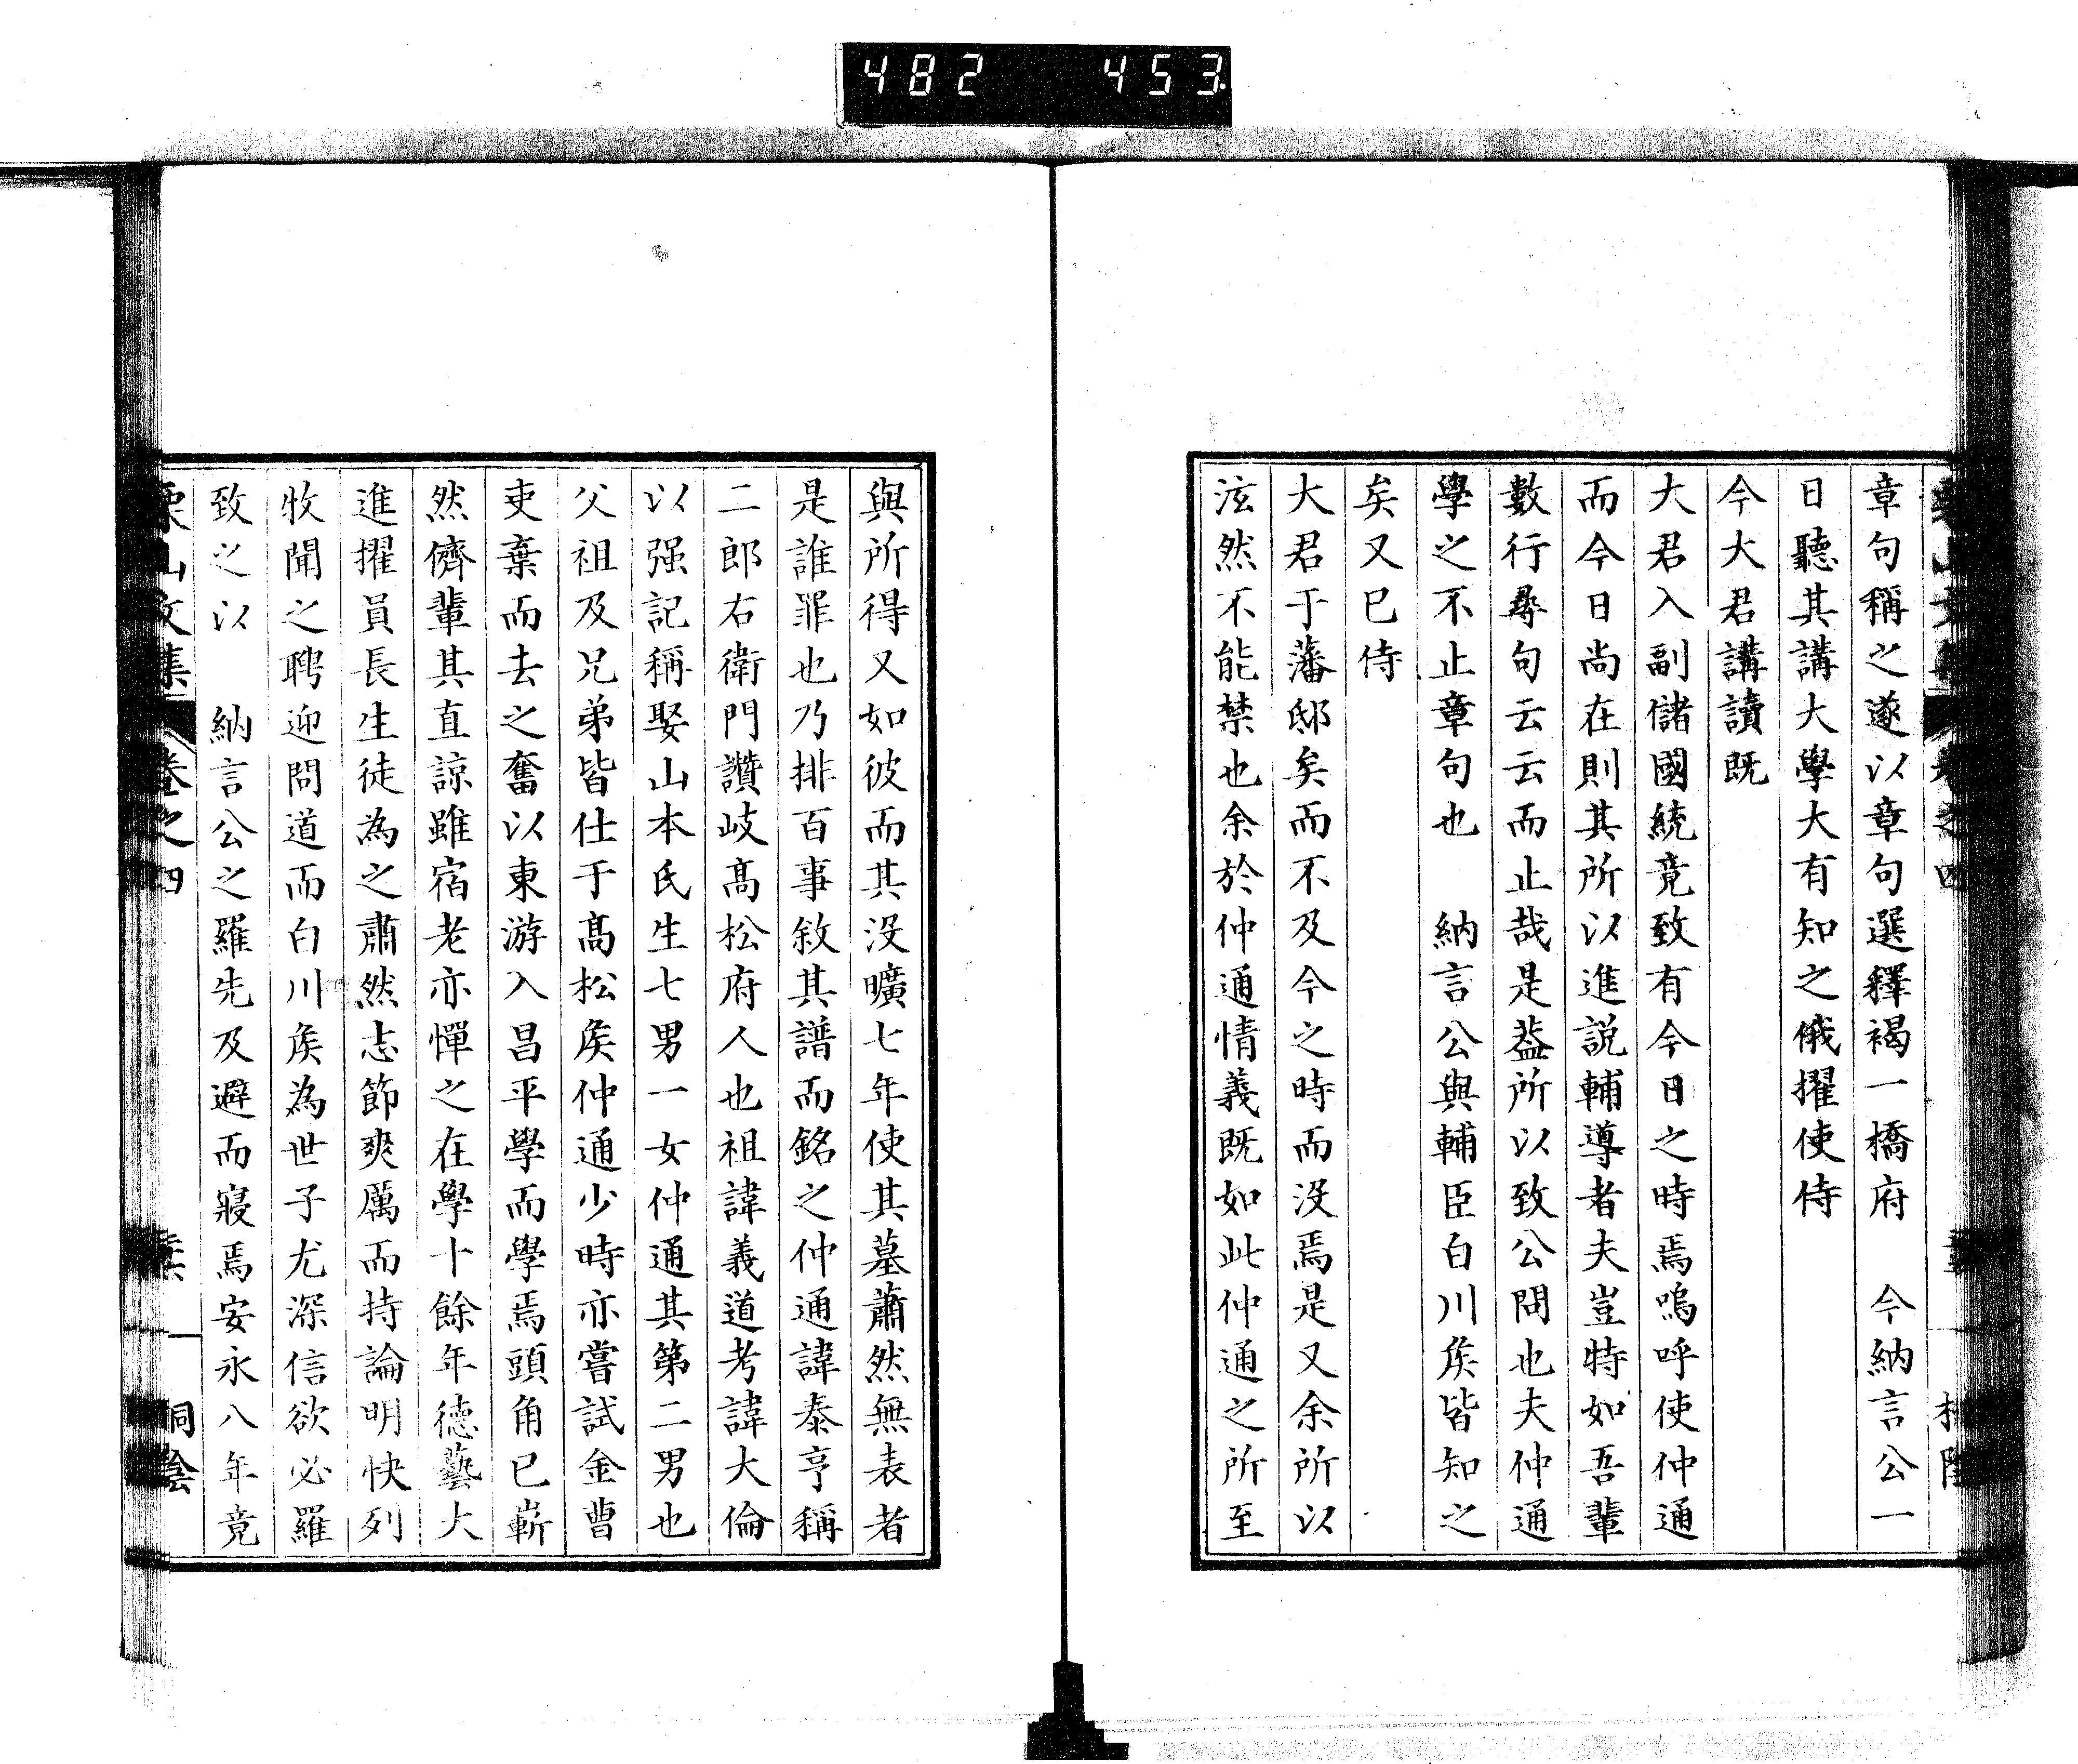 482 453
章句稱之遂以章句選釋褐一橋府　今納言公一
日聽其講大學大有知之俄擢使侍
今大君講讀既
大君入副儲國統竟致有今日之時焉嗚呼使仲通
而今日尚在則其所以進説輔導者夫豈特如吾輩
數行尋句云云而止哉是葢所以致公問也夫仲通
學之不止章句也　納言公與輔臣白川矦皆知之
矣又巳侍
大君于藩邸矣而不及今之時而没焉是又余所以
泫然不能禁也余於仲通情義既如此仲通之所至
與所得又如彼而其没曠七年使其墓蕭然無表者
是誰罪也乃排百事敘其譜而銘之仲通諱泰亨稱
二郎右衛門讚岐髙松府人也祖諱義道考諱大倫
以强記稱娶山本氏生七男一女仲通其第二男也
父祖及兄弟皆仕于髙松矦仲通少時亦嘗試金曹
吏棄而去之奮以東游入昌平學而學焉頭角已嶄
然儕輩其直諒雖宿老亦憚之在學十餘年德藝大
進擢員長生徒為之肅然志節爽厲而持論明快列
牧聞之聘迎問道而白川矦為世子尤深信欲必羅
致之以　納言公之羅先及避而寢焉安永八年竟
栗山文集　卷之四　桐陰